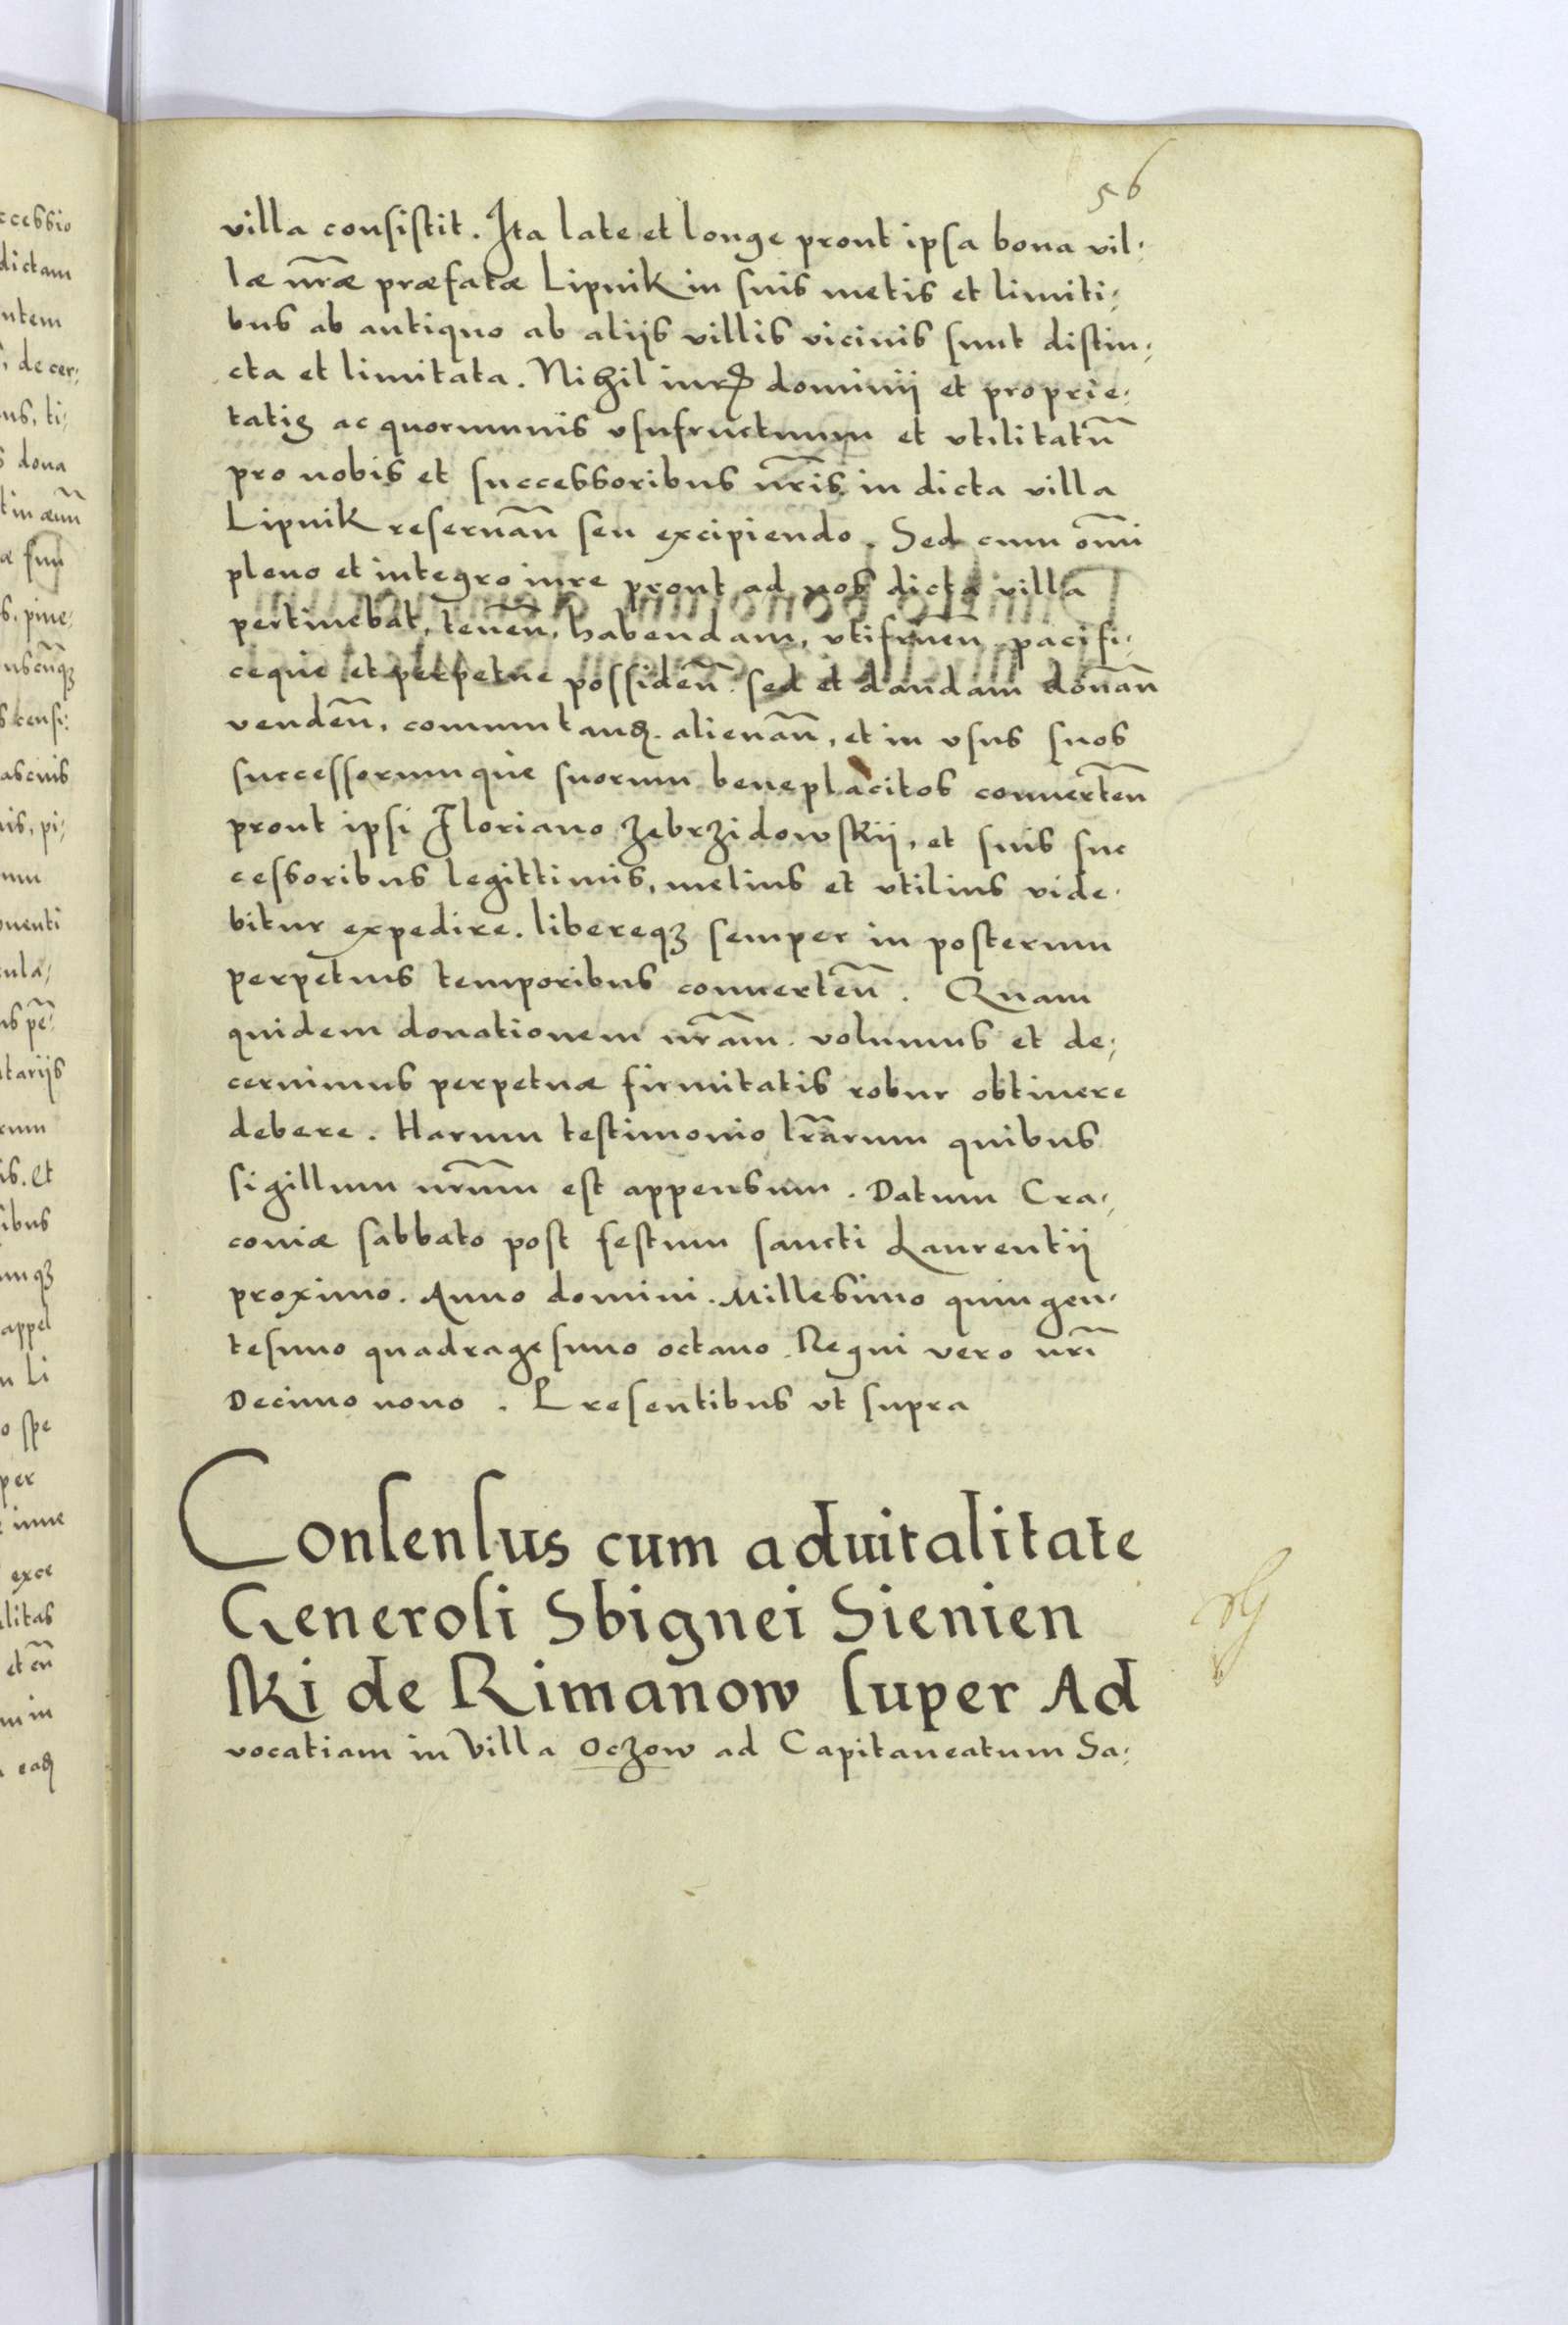 56
villa consistit. Ita late et longe prout ipsa bona vil-
læ nr̃æ præfatæ Lipnik in suis metis et limiti-
bus ab antiquo ab aliis villis vicinis sunt distin-
cta et limitata. Nihil dominii et proprie-
tatis ac quorumuis vsufructuum et vtilitatũ
pro nobis et successoribus nr̃is in dicta villa
Lipnik reseruañ seu excipiendo. Sed cum om̃i
pleno et integro iure prout ad nos dicta villa
pertinebat, teneñ, habendam, vtifrueñ pacifi-
ceque et perpetue possideñ. sed et dandam donañ
vendeñ, commutanđ. alienañ, et in vsus suos
successorumque suorum beneplacitos conuerteñ
prout ipsi Floriano Zebrzidowskii, et suis suc
cessoribus legittimis, melius et vtilius vide-
bitur expedire. libereqȝ semper in posterum
perpetuis temporibus conuerteñ. Quam
quidem donationem nr̃am. volumus et de-
cernimus perpetuæ firmitatis robur obtinere
debere. Harum testimonio lr̃arum quibus
sigillum nr̃um est appensum. Datum Cra-
coniæ sabbato post festum sancti Laurentii
proximo. Anno domini. Millesimo quingen-
tesimo quadragesimo octauo. Regni vero nr̃i
Decimo nono. Presentibus vt supra
Consensus cum aduitalitate
Generosi Sbignei Sienien
ski de Rimanow super Ad
vocatiam in Villa Oczow ad Capitaneatum Sa-